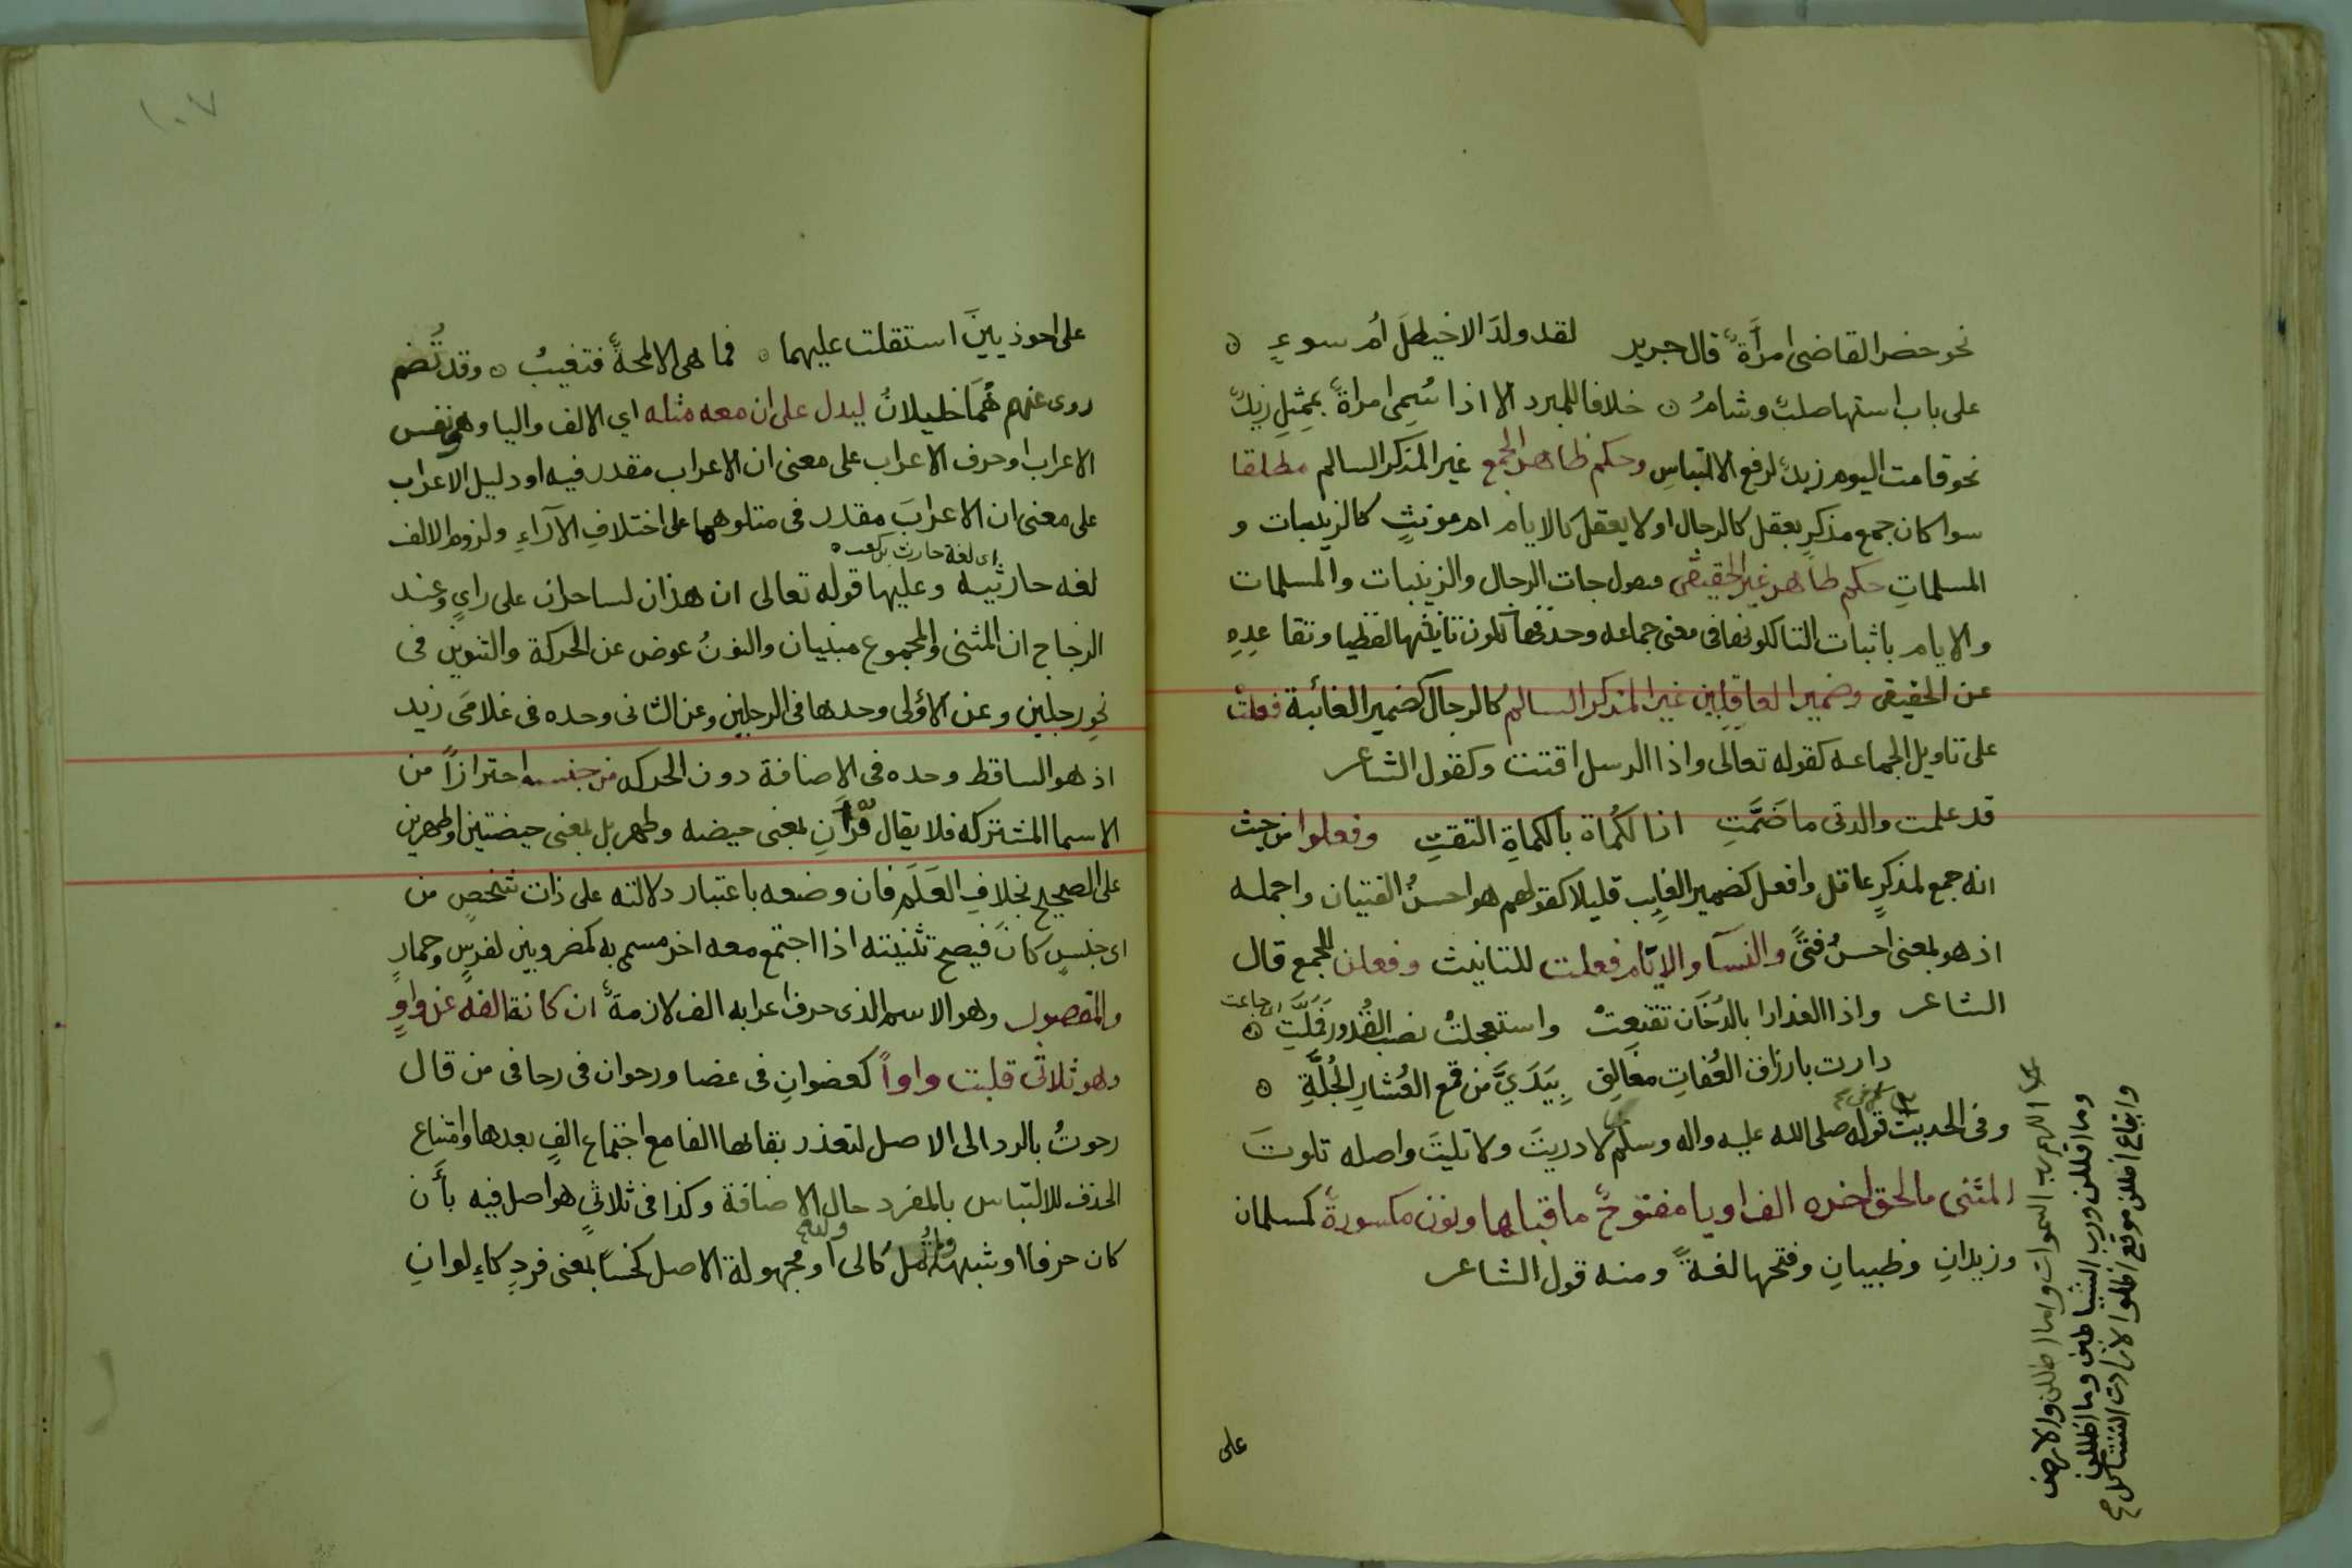 نحو حضر القاضى امرأة قال جرير لقد ولد الاخيطل ام سوء
على باب استها صلب وشام خلافا للمبرد الا اذا سمى امراة بمثل زيد
نحو قامت اليوم زيد لرفع الالتباس وحكم ظاهر الجمع غير المذكر السالم مطلقا
سوا كان جمع مذكر يعقل كالرجال او لا يعقل كالايام ام مونث كالزينبات و
المسلمات حكم ظاهر غير الحقيقى فنقول جات الرجال والزينبات والمسلمات
والايام باثبات التا لكونها فى معنى جماعه وحذفها لكون تانيثها لفظيا وتقاعده
عن الحقيقى وضمير العاقلين غير المذكر السالم كالرجال كضمير الغائبة فعلت
على تاويل الجماعه كقوله تعالى واذا الرسل اقتت وكقول الشاعر
قد علمت والدتى ما ضمت اذا لكماة بالكماة التقت وفعلوا من حيث
انه جمع لمذكر عاقل وافعل كضمير الغايب قليلا كقولهم هو احسن الفتيان واجمله
اذ هو بمعنى احسن فتى والنسآ والايام فعلت للتانيث وفعلن للجمع قال
الشاعر واذا العذارا بالدخان تقنعت واستعجلت نصب القدور فملت
دارت بارزاق العفات مغالق بيدي من قمع العشار الجلة
وفى الحديث قوله صلى الله عليه واله وسلم لا دريت ولا تليت واصله تلوت
المثنى ما لحق اخره الف او يا مفتوح ما قبلها ونون مكسورة كمسلمان
وزيدان وظبيان وفتحها لغة ومنه قول الشاعر
على
اللهم رب السموات وما اظللن والارض
وما اقللن ورب الشياطين وما اضللن
وايقاع اضللن موقع اضلوا لارادت التشاكل
١٠٧
على احوذيين استقلت عليهما فما هى الا لمحة فتغيب وقد تضم
روى عنهم هما خليلان ليدل على ان معه مثله اي الالف واليا وهى نفس
الاعراب او حرف الاعراب على معنى ان الاعراب مقدر فيه او دليل الاعراب
على معنى ان الاعراب مقدر فى متلوهما على اختلاف الآراء ولزوم الالف
اى لغة حارث بن كعب
لغه حارثيه وعليها قوله تعالى ان هذان لساحران على راي وعند
الزجاج ان المثنى والمجموع مبنيان والنون عوض عن الحركة والتنوين فى
نحو رجلين وعن الاولى وحدها فى الرجلين وعن الثانى وحده فى غلامى زيد
اذ هو الساقط وحده فى الاضافة دون الحركه من جنسه احترازا من
الاسما المشتركه فلا يقال قرآن بمعنى حيضه وطهر بل بمعنى حيضتين او طهرين
على الصحيح بخلاف العلم فان وضعه باعتبار دلالته على ذات شخص من
اى جنس كان فيصح تثنيته اذا اجتمع معه اخر مسمى به كمضروبين لفرس وحمار
والمقصور وهو الاسم الذى حرف اعرابه الف لازمة ان كانة الفه عن واو
وهو ثلاثى قلبت واوا كعصوان فى عصا ورحوان فى رحا فى من قال
رحوت بالرد الى الاصل لتعذر بقائها الفا مع اجتماع الف بعدها وامتناع
الحذف للالتباس بالمفرد حال الاضافة وكذا فى ثلاثى هو اصل فيه بأن
كان حرفا او شبهه ولم تمل كالى او مجهولة الاصل كخسا بمعنى فرد كالوان